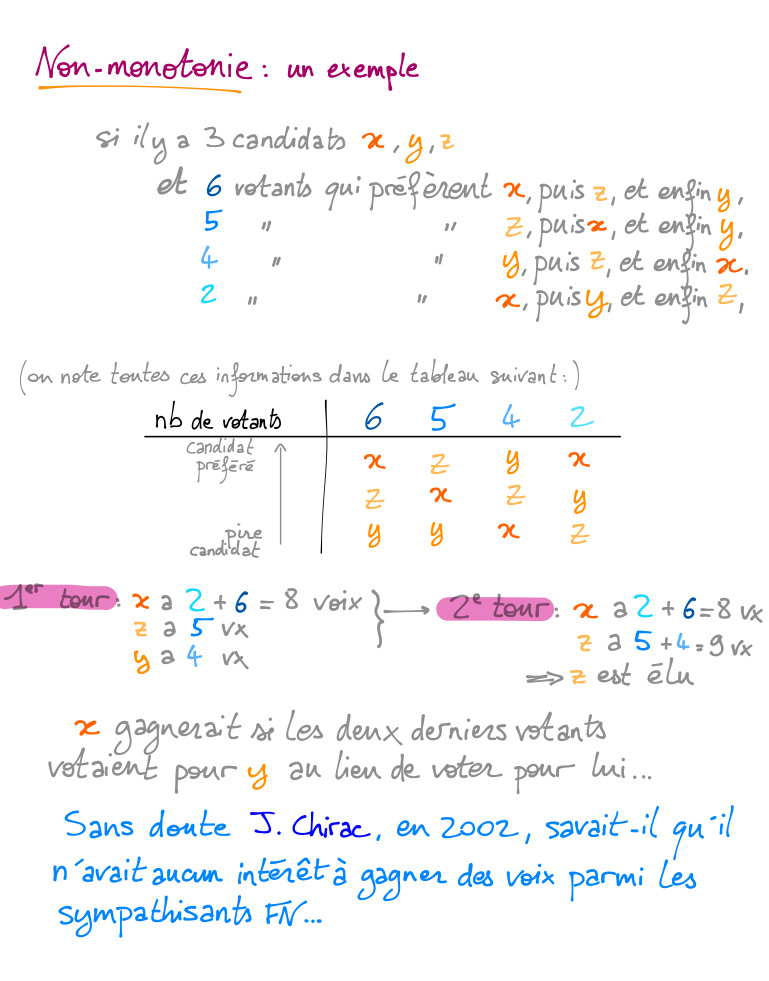 Non-monotonie : un exemple
si il y a 3 candidats x, y, z
et 6 votants qui préfèrent x, puis z, et enfin y,
5 " " z, puis x, et enfin y,
4 " " y, puis z, et enfin x.
2 " " x, puis y, et enfin z,
(on note toutes ces informations dans le tableau suivant :)
nb de votants 6 5 4 2
candidat préféré x z y x
z x z y
pire candidat y y x z
1er tour : x a 2 + 6 = 8 voix } → 2e tour : x a 2 + 6 = 8 vx
z a 5 vx z a 5 + 4 = 9 vx
y a 4 vx ⇒ z est élu
x gagnerait si les deux derniers votants
votaient pour y au lieu de voter pour lui...
Sans doute J. Chirac, en 2002, savait-il qu'il
n'avait aucun intérêt à gagner des voix parmi les
sympathisants FN...